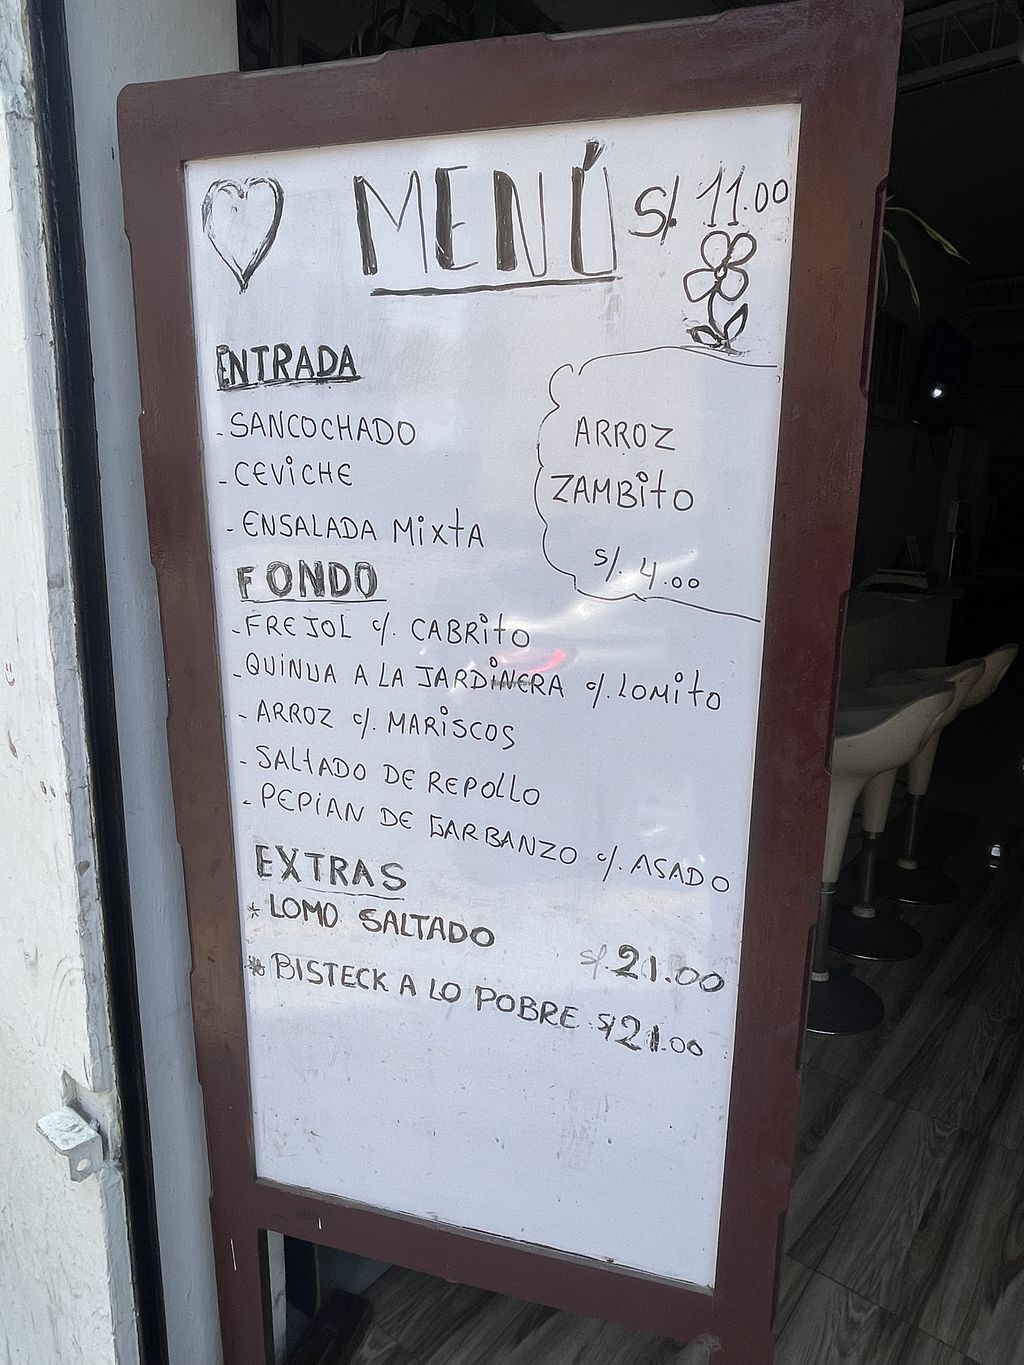 MENÚ S/. 11.00
ENTRADA
- SANCOCHADO
- CEVICHE
- ENSALADA MIXTA
ARROZ
ZAMBITO
S/. 4.00
FONDO
- FREJOL c/. CABRITO
- QUINUA A LA JARDINERA c/. LOMITO
- ARROZ c/. MARISCOS
- SALTADO DE REPOLLO
- PEPIAN DE GARBANZO c/. ASADO
EXTRAS
* LOMO SALTADO S/. 21.00
* BISTECK A LO POBRE S/ 21.00